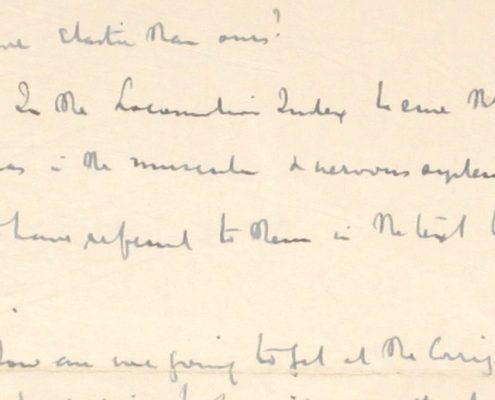 elastic than ours?
In the Locomotion Index to
as in the muscular & nervous
have referred to them in the text
How are we going to get at the